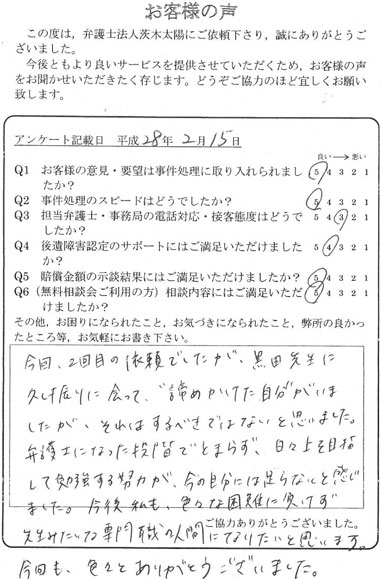 お客様の声
この度は，弁護士法人茨木太陽にご依頼下さり，誠にありがとうございました。
今後ともより良いサービスを提供させていただくため，お客様の声をお聞かせいただきたく存じます。どうぞご協力のほど宜しくお願い致します。
アンケート記載日 平成28年2月15日
良い→悪い
Q1 お客様の意見・要望は事件処理に取り入れられましたか？ 5 4 3 2 1
Q2 事件処理のスピードはどうでしたか？ 5 4 3 2 1
Q3 担当弁護士・事務局の電話対応・接客態度はどうでしたか？ 5 4 3 2 1
Q4 後遺障害認定のサポートにはご満足いただけましたか？ 5 4 3 2 1
Q5 賠償金額の示談結果にはご満足いただけましたか？ 5 4 3 2 1
Q6（無料相談会ご利用の方）相談内容にはご満足いただけましたか？ 5 4 3 2 1
その他，お困りになられたこと，お気づきになられたこと，弊所の良かったところ等，お気軽にお書き下さい。
今回、2回目の依頼でしたが、黒田先生に
久し振りに会って、諦めかけた自分がいま
したが、それはするべきではないと思いました。
弁護士になった段階でとまらず、日々上を目指
して勉強する努力が、今の自分には足らないと感じ
ました。今後私も、色々な困難に負けず
先生みたいな専門職の人間になりたいと思います。
ご協力ありがとうございました。
今回も、色々とありがとうございました。